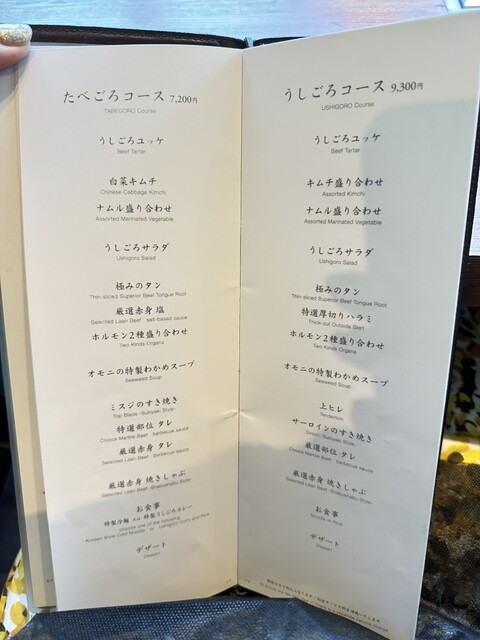 たべごろコース 7,200円
TABEGORO Course
うしごろユッケ
Beef Tartar
白菜キムチ
Chinese Cabbage Kimchi
ナムル盛り合わせ
Assorted Marinated Vegetable
うしごろサラダ
Ushigoro Salad
極みのタン
Thin-sliced Superior Beef Tongue Root
厳選赤身 塩
Selected Lean Beef salt-based sauce
ホルモン2種盛り合わせ
Two Kinds Organs
オモニの特製わかめスープ
Seaweed Soup
ミスジのすき焼き
Top Blade -Sukiyaki Style-
特選部位 タレ
Choice Marble Beef barbecue sauce
厳選赤身 タレ
Selected Lean Beef barbecue sauce
厳選赤身 焼きしゃぶ
Selected Lean Beef -Shabushabu Style-
お食事
特製冷麺 又は 特製うしごろカレー
choose one of the following
Korean Style Cold Noodle or Ushigoro Curry and Rice
デザート
Dessert
うしごろコース 9,300円
USHIGORO Course
うしごろユッケ
Beef Tartar
キムチ盛り合わせ
Assorted Kimchi
ナムル盛り合わせ
Assorted Marinated Vegetable
うしごろサラダ
Ushigoro Salad
極みのタン
Thin-sliced Superior Beef Tongue Root
特選厚切りハラミ
Thick-cut Outside Skirt
ホルモン2種盛り合わせ
Two Kinds Organs
オモニの特製わかめスープ
Seaweed Soup
上ヒレ
Tenderloin
サーロインのすき焼き
Sirloin -Sukiyaki Style-
厳選部位 タレ
Choice Marble Beef barbecue sauce
厳選赤身 焼きしゃぶ
Selected Lean Beef -Shabushabu Style-
お食事
Noodle or Rice
デザート
Dessert